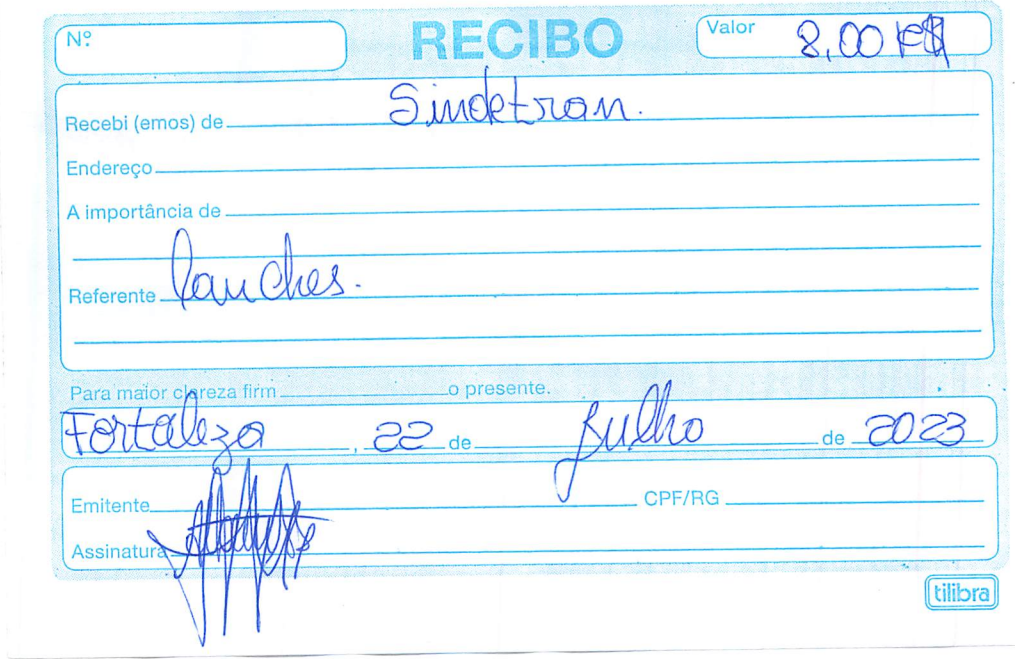 Nº RECIBO Valor 8,00 R$
Recebi (emos) de Sindetran.
Endereço
A importância de
Referente lanches.
Para maior clareza firm o presente.
Fortaleza, 22 de Julho de 2023
Emitente CPF/RG
Assinatura
tilibra